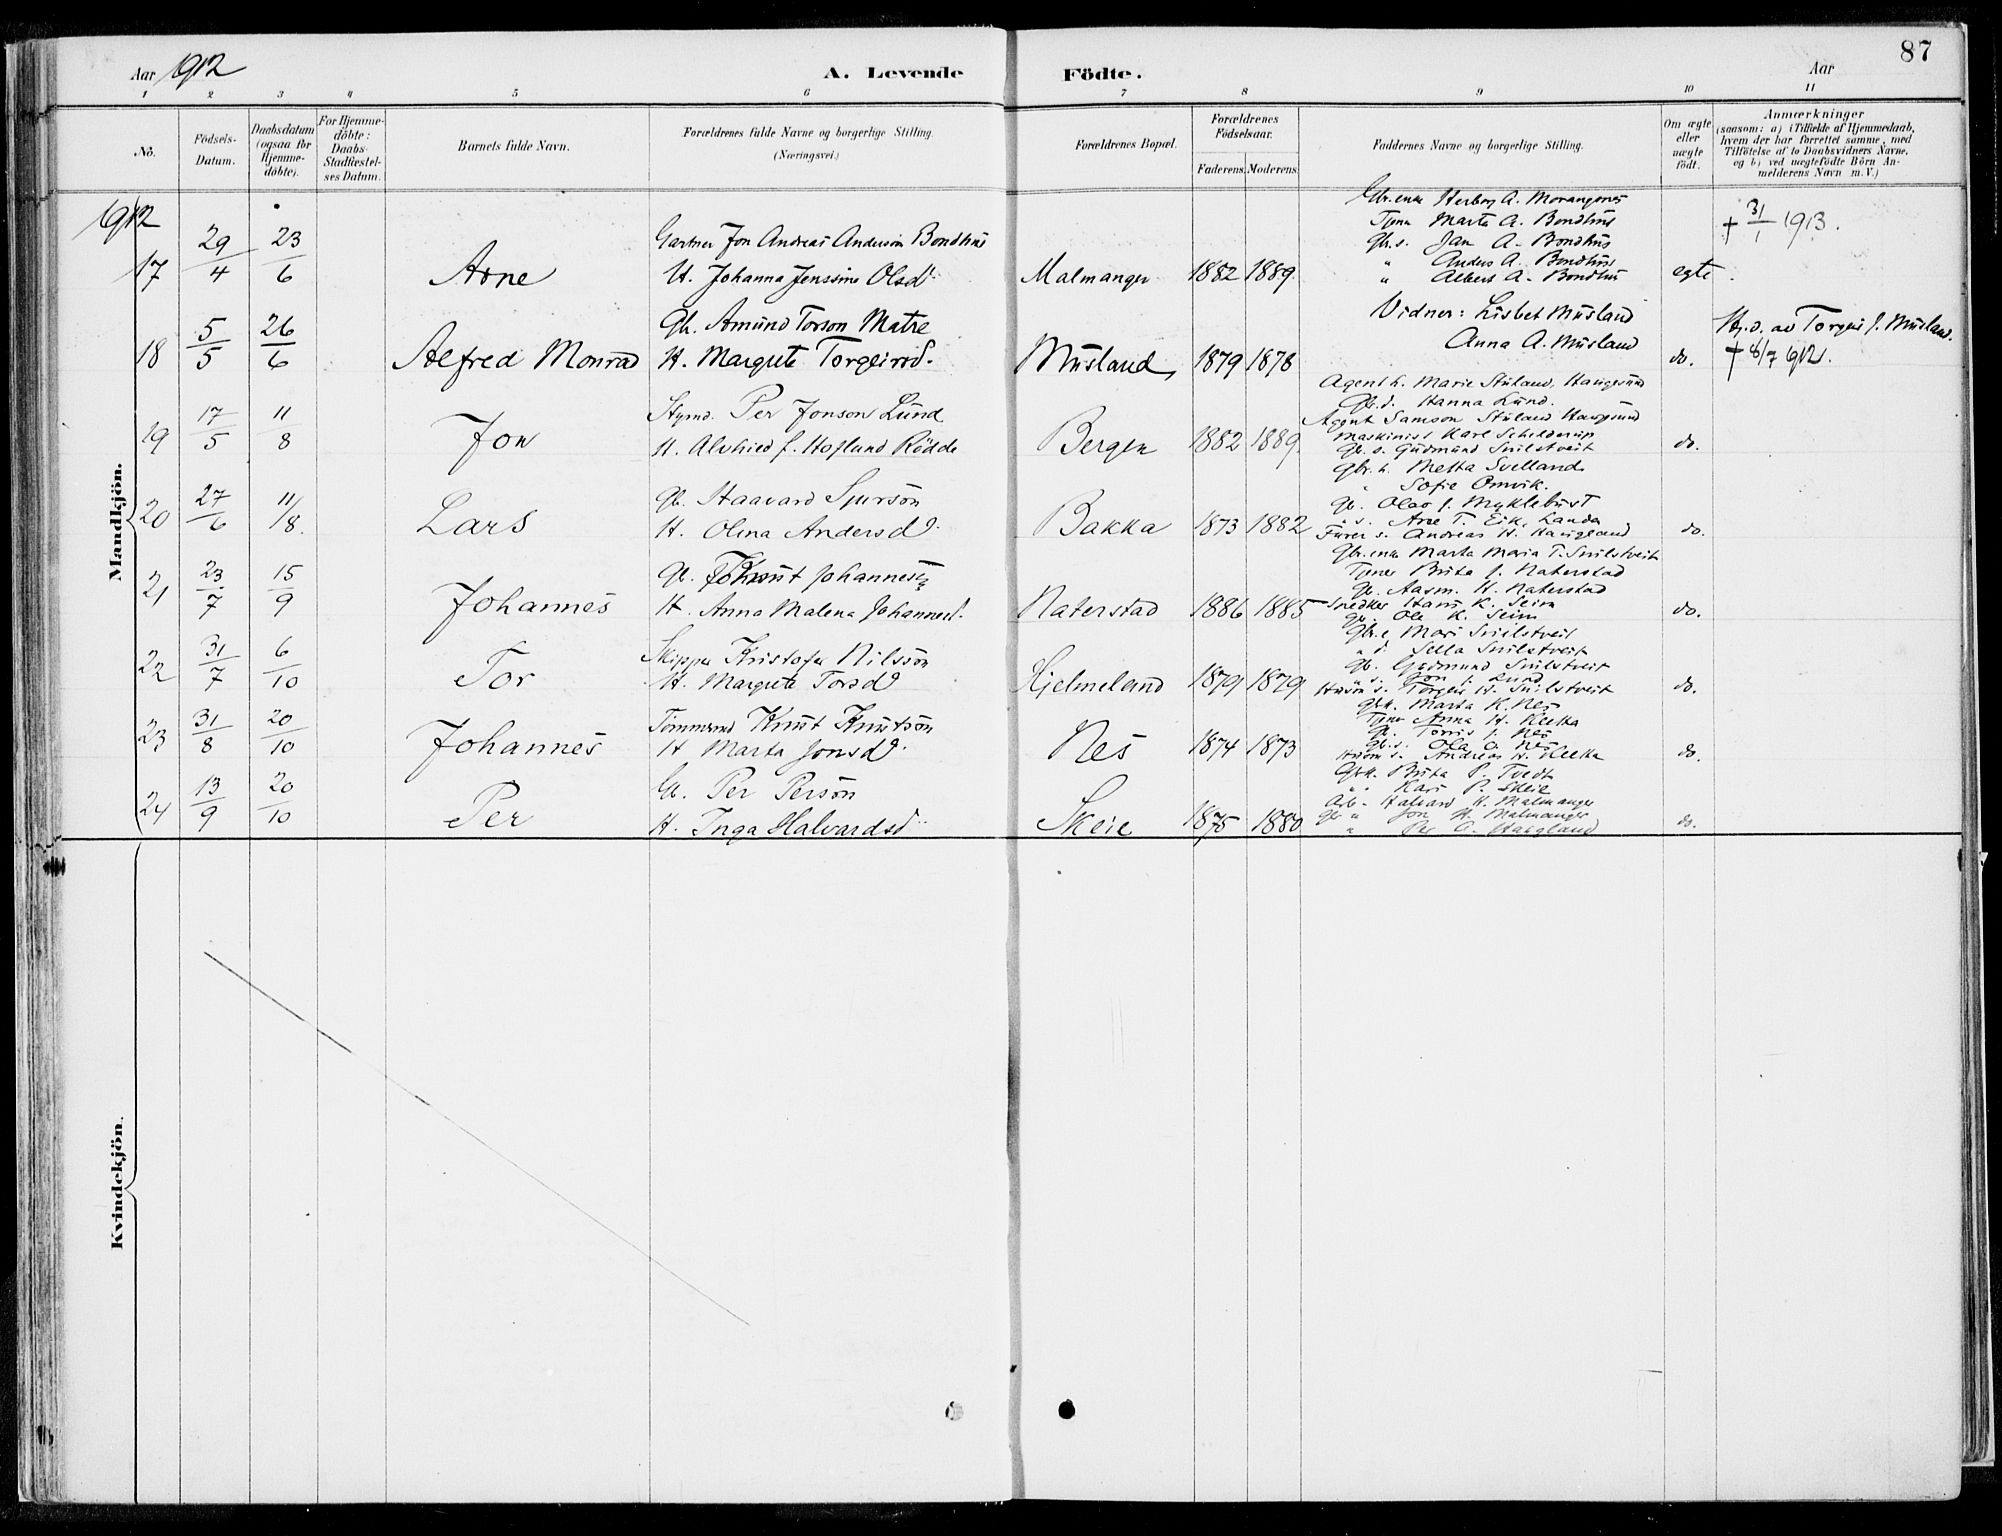 87
Aar 1912 A. Levende Födte. Aar
1 2 3 4 5 6 7 8 9 10 11
No.
Födsels-Datum.
Daabsdatum (ogsaa for Hjemme-döbte).
For Hjemme-döbte: Daabs-Stadfæstel-ses Datum.
Barnets fulde Navn.
Forældrenes fulde Navne og borgerlige Stilling. (Næringsvei.)
Forældrenes Bopæl.
Forældrenes Födselsaar.
Faderens. Moderens.
Faddernes Navne og borgerlige Stilling.
Om ægte eller uægte födt.
Anmærkninger (saasom: a) i Tilfælde af Hjemmedaab, hvem der har forrettet samme, med Tilföielse af to Daabsvidners Navne, og b) ved uægtefödte Börn Anmelderens Navn m.V.)
Mandkjön.
1912
17 29/4 23/6 Arne
Gartner Jon Andreas Anderson Bondhus
H. Johanna Jenssine Olsd.
Malmanger 1882 1889
Gbr.enke Herborg A. Morangsnes
Tjene Marta A. Bondhus
Gb.s. Jan A. Bondhus
" Anders A. Bondhus
" Albert A. Bondhus
egte.
† 31/1 1913.
18 5/5 26/6 Alfred Monrad
Gb. Amund Torson Matre
H. Margrete Torgeirsd.
Musland, 1879 1878
Vidner: Lisbet Musland
Anna A. Musland
do.
Hj.d. av Torgeir J. Musland.
† 8/7 912.
19 17/5 11/8 Jon
Styrmd. Per Jonson Lund
H. Alvhied J. Hoflund Rödde
Bergen 1882 1889.
Agent h. Marie Stuland, Haugesund
Gb.d. Hanna Lund.
Agent Samson Stuland Haugesund
Maskinist Karl Schelderup
Gb. s. Gudmund Snilstveit
do.
20 27/6 11/8. Lars
Gb. Haavard Sjurson
H. Olina Andersd.
Bakka 1873 1882
Gbr. h. Metta Svelland
" Sofie Omvik.
Gb. Olav J. Myklebust
" s. Arne T. Eik, Landa
Furer s. Andreas H. Haugland
do.
21 23/7 15/9 Johannes
Gb. Knut Johannesen
H. Anna Malena Johannesd.
Naterstad 1886 1885
Gbr.enke Marta Maria T. Snilstveit
Tjener Brita J. Naterstad
Gb. Aasm. H. Naterstad
Snedker Hans K. Seim
Gb. Ole K. Seim
do.
22 31/7 6/10 Tor
Skipper Kristofer Nilsson
H. Margreta Torsd.
Hjelmeland 1879 1879
Gbr.e Mari Snilstveit
" d. Sella Snilstveit
Gb. Gudmund Snilstveit
" s. Jon J. Lund
Husm s. Torgeir H. Snilstveit
do.
23 31/8 20/10 Johannes
Tömmermd Knut Knutson
H Marta Jonsd.
Nes 1874 1873
Gbk. Marta K. Nes
Tjener Anna H. Kletta
Gb. Torris J. Nes
Gb.s. Ola O. Nes
Husm s. Andreas H. Kletta
do.
24 13/9 20/10 Per
Gb. Per Person
H. Inga Halvardsd.
Skeie 1875 1880
Gbk. Brita P. Tvedt
" Kari P. Skeie
Arb. Halvard H. Malmanger
Gb " Jon H. Malmanger
" Per G. Haugland
do.
Kvindekjön.